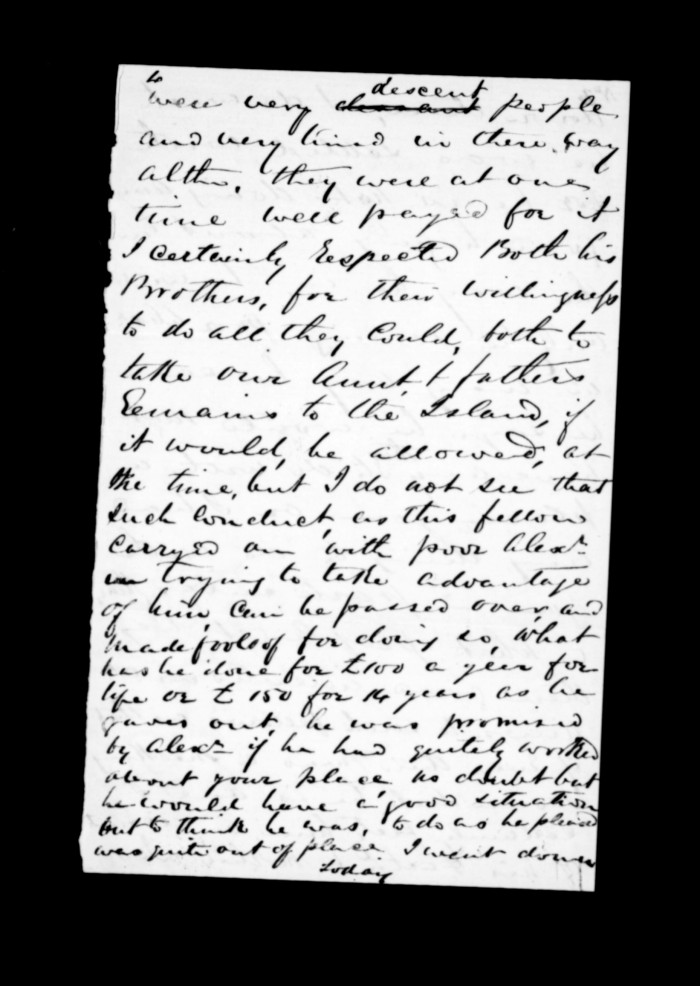 4
descent
were very people
and very kind in there way
altho, they were at one
time well payed for it
I certainly Respected Both his
Brothers, for their willingness
to do all they Could, both to
take our Aunt, & fathers
Remains to the Island, if
it would, be allowed, at
the time, but I do not see that
such Conduct, as this fellow
Carryed on with poor Alexr
trying to take advantage
of him, Can be passed over, and
made fools of for doing so, What
has he done for £100 a year for
life or £150 for 14 years as he
gives out, he was promised
by Alexr if he had quitely worked
about your place no doubt but
he would have a good situation
but to think he was, to do as he pleasd
was quite out of place I went down
today